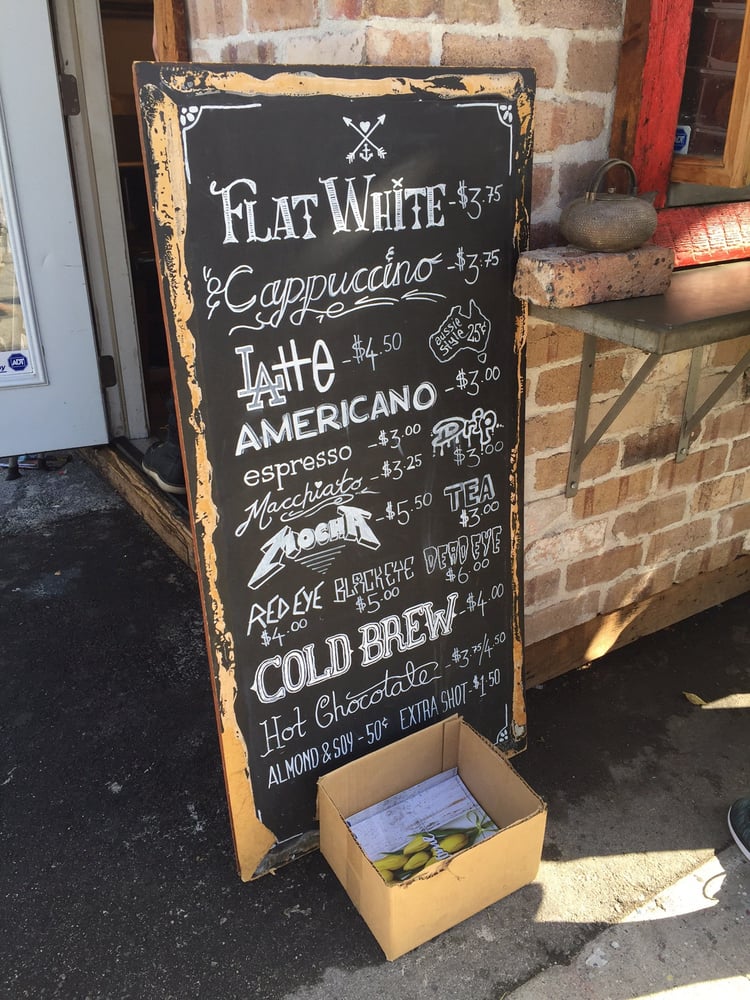 FLAT WHITE - $3.75
Cappuccino - $3.75
aussie style 25¢
LAtte - $4.50
AMERICANO - $3.00
espresso - $3.00
Drip.. $3.00
Macchiato - $3.25
TEA $3.00
MOCHA - $5.50
RED EYE $4.00
BLACK EYE $5.00
DEAD EYE $6.00
COLD BREW - $4.00
Hot Chocolate - $3.75/4.50
ALMOND & SOY - 50¢ EXTRA SHOT - $1.50
ADT
ADT